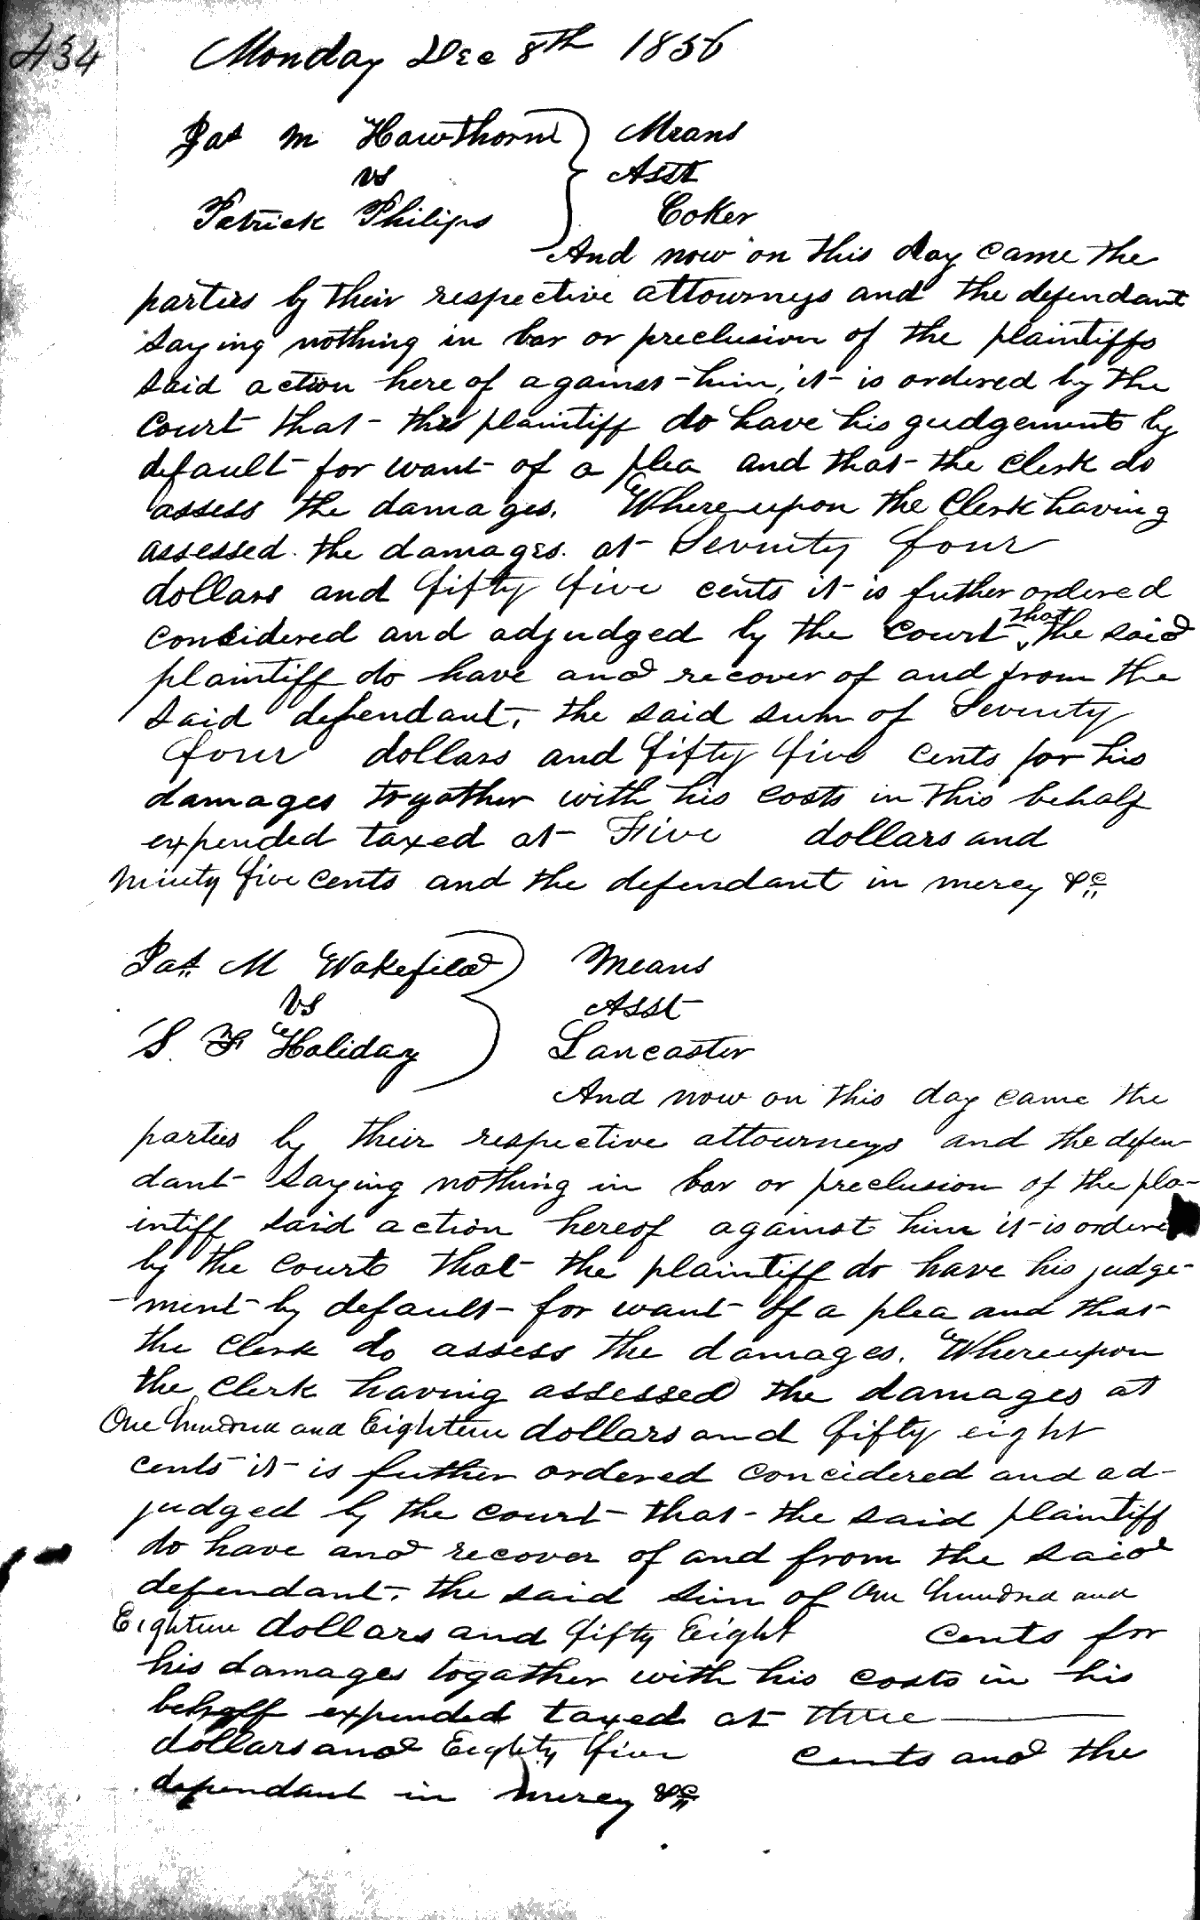 434
Monday Dec 8th 1856
Jas M Hawthorn Means
vs Asst
Patrick Philips Coker
And now on this day came the
parties by their respective attourneys and the defendant
saying nothing in bar or preclusion of the plaintiffs
said action here of against him, it is ordered by the
Court that the plaintiff do have his gudgement by
default for want of a plea and that the Clerk do
assess the damages. Whereupon the Clerk having
assessed the damages at Seventy four
dollars and fifty five cents it is futher ordered
considered and adjudged by the Court that the said
plaintiff do have and recover of and from the
said defendant, the said sum of Seventy
four dollars and fifty five cents for his
damages togather with his costs in this behalf
expended taxed at Five dollars and
Ninety five cents and the defendant in mercy &c
Jas M Wakefield Means
vs Asst
S. F Holiday Lancaster
And now on this day came the
parties by their respective attourneys and the defen-
dant saying nothing in bar or preclusion of the pla-
intiff said action hereof against him it is ordered
by the Court that the plaintiff do have his judge-
-ment by default for want of a plea and that
the Clerk do assess the damages. Whereupon
the Clerk having assessed the damages at
One hundred and Eighteen dollars and fifty eight
cents it is futher ordered concidered and ad-
judged by the court that the said plaintiff
do have and recover of and from the said
defendant, the said sim of One hundred and
Eighteen dollars and fifty Eight cents for
his damages togather with his costs in his
behalf expended taxed at three
dollars and Eighty five cents and the
defendant in mercy &c